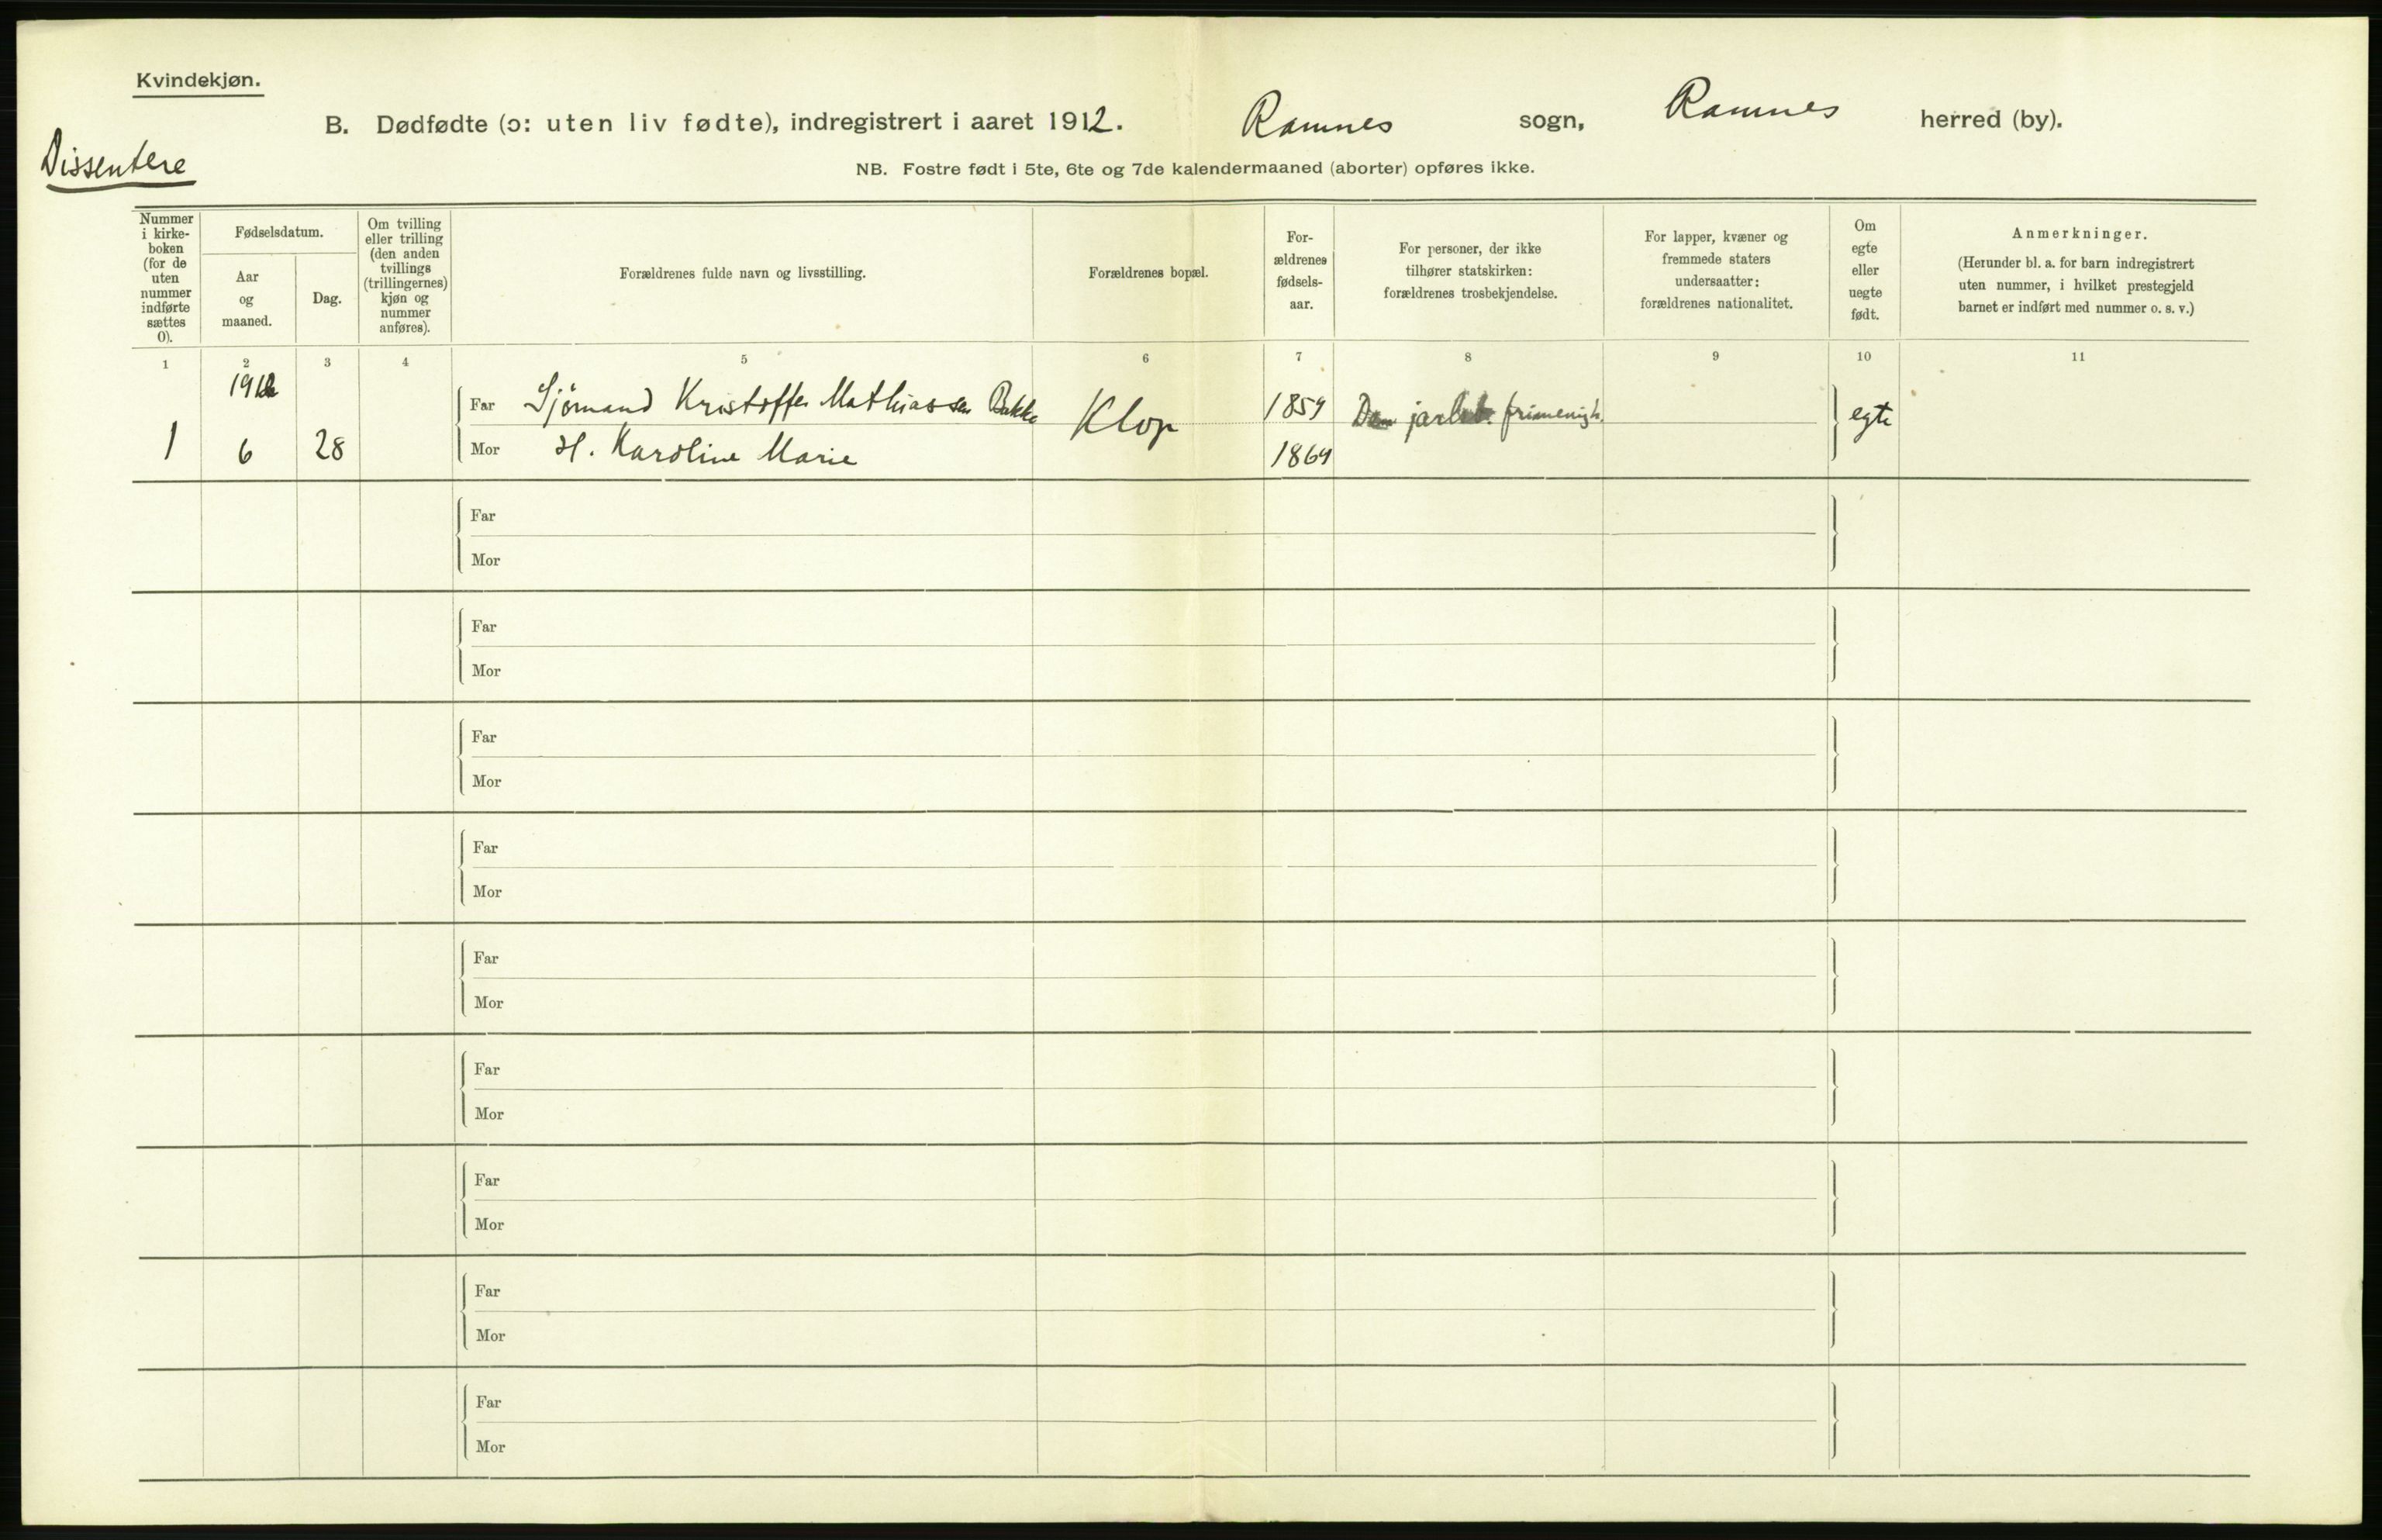 Kvindekjøn.
B. Dødfødte (ɔ: uten liv fødte), indregistrert i aaret 1912. Ramnes sogn, Ramnes herred (by).
Dissentere
NB. Fostre født i 5te, 6te og 7de kalendermaaned (aborter) opføres ikke.
Nummer
i kirke-
boken
(for de
uten
nummer
indførte
sættes
0).
Fødselsdatum.
Aar
og
maaned.
Dag.
Om tvilling
eller trilling
(den anden
tvillings
(trillingernes)
kjøn og
nummer
anføres).
Forældrenes fulde navn og livsstilling.
Forældrenes bopæl.
For-
ældrenes
fødsels-
aar.
For personer, der ikke
tilhører statskirken:
forældrenes trosbekjendelse.
For lapper, kvæner og
fremmede staters
undersaatter:
forældrenes nationalitet.
Om
egte
eller
uegte
født.
Anmerkninger.
(Herunder bl. a. for barn indregistrert
uten nummer, i hvilket prestegjeld
barnet er indført med nummer o. s. v.)
1 2 3 4 5 6 7 8 9 10 11
1912
Far Sjømand Kristoffer Mathiassen Bakke Klop 1859 Den jarlsb. frimenigh. egte
1 6 28 Mor H. Karoline Marie 1869
Far
Mor
Far
Mor
Far
Mor
Far
Mor
Far
Mor
Far
Mor
Far
Mor
Far
Mor
Far
Mor